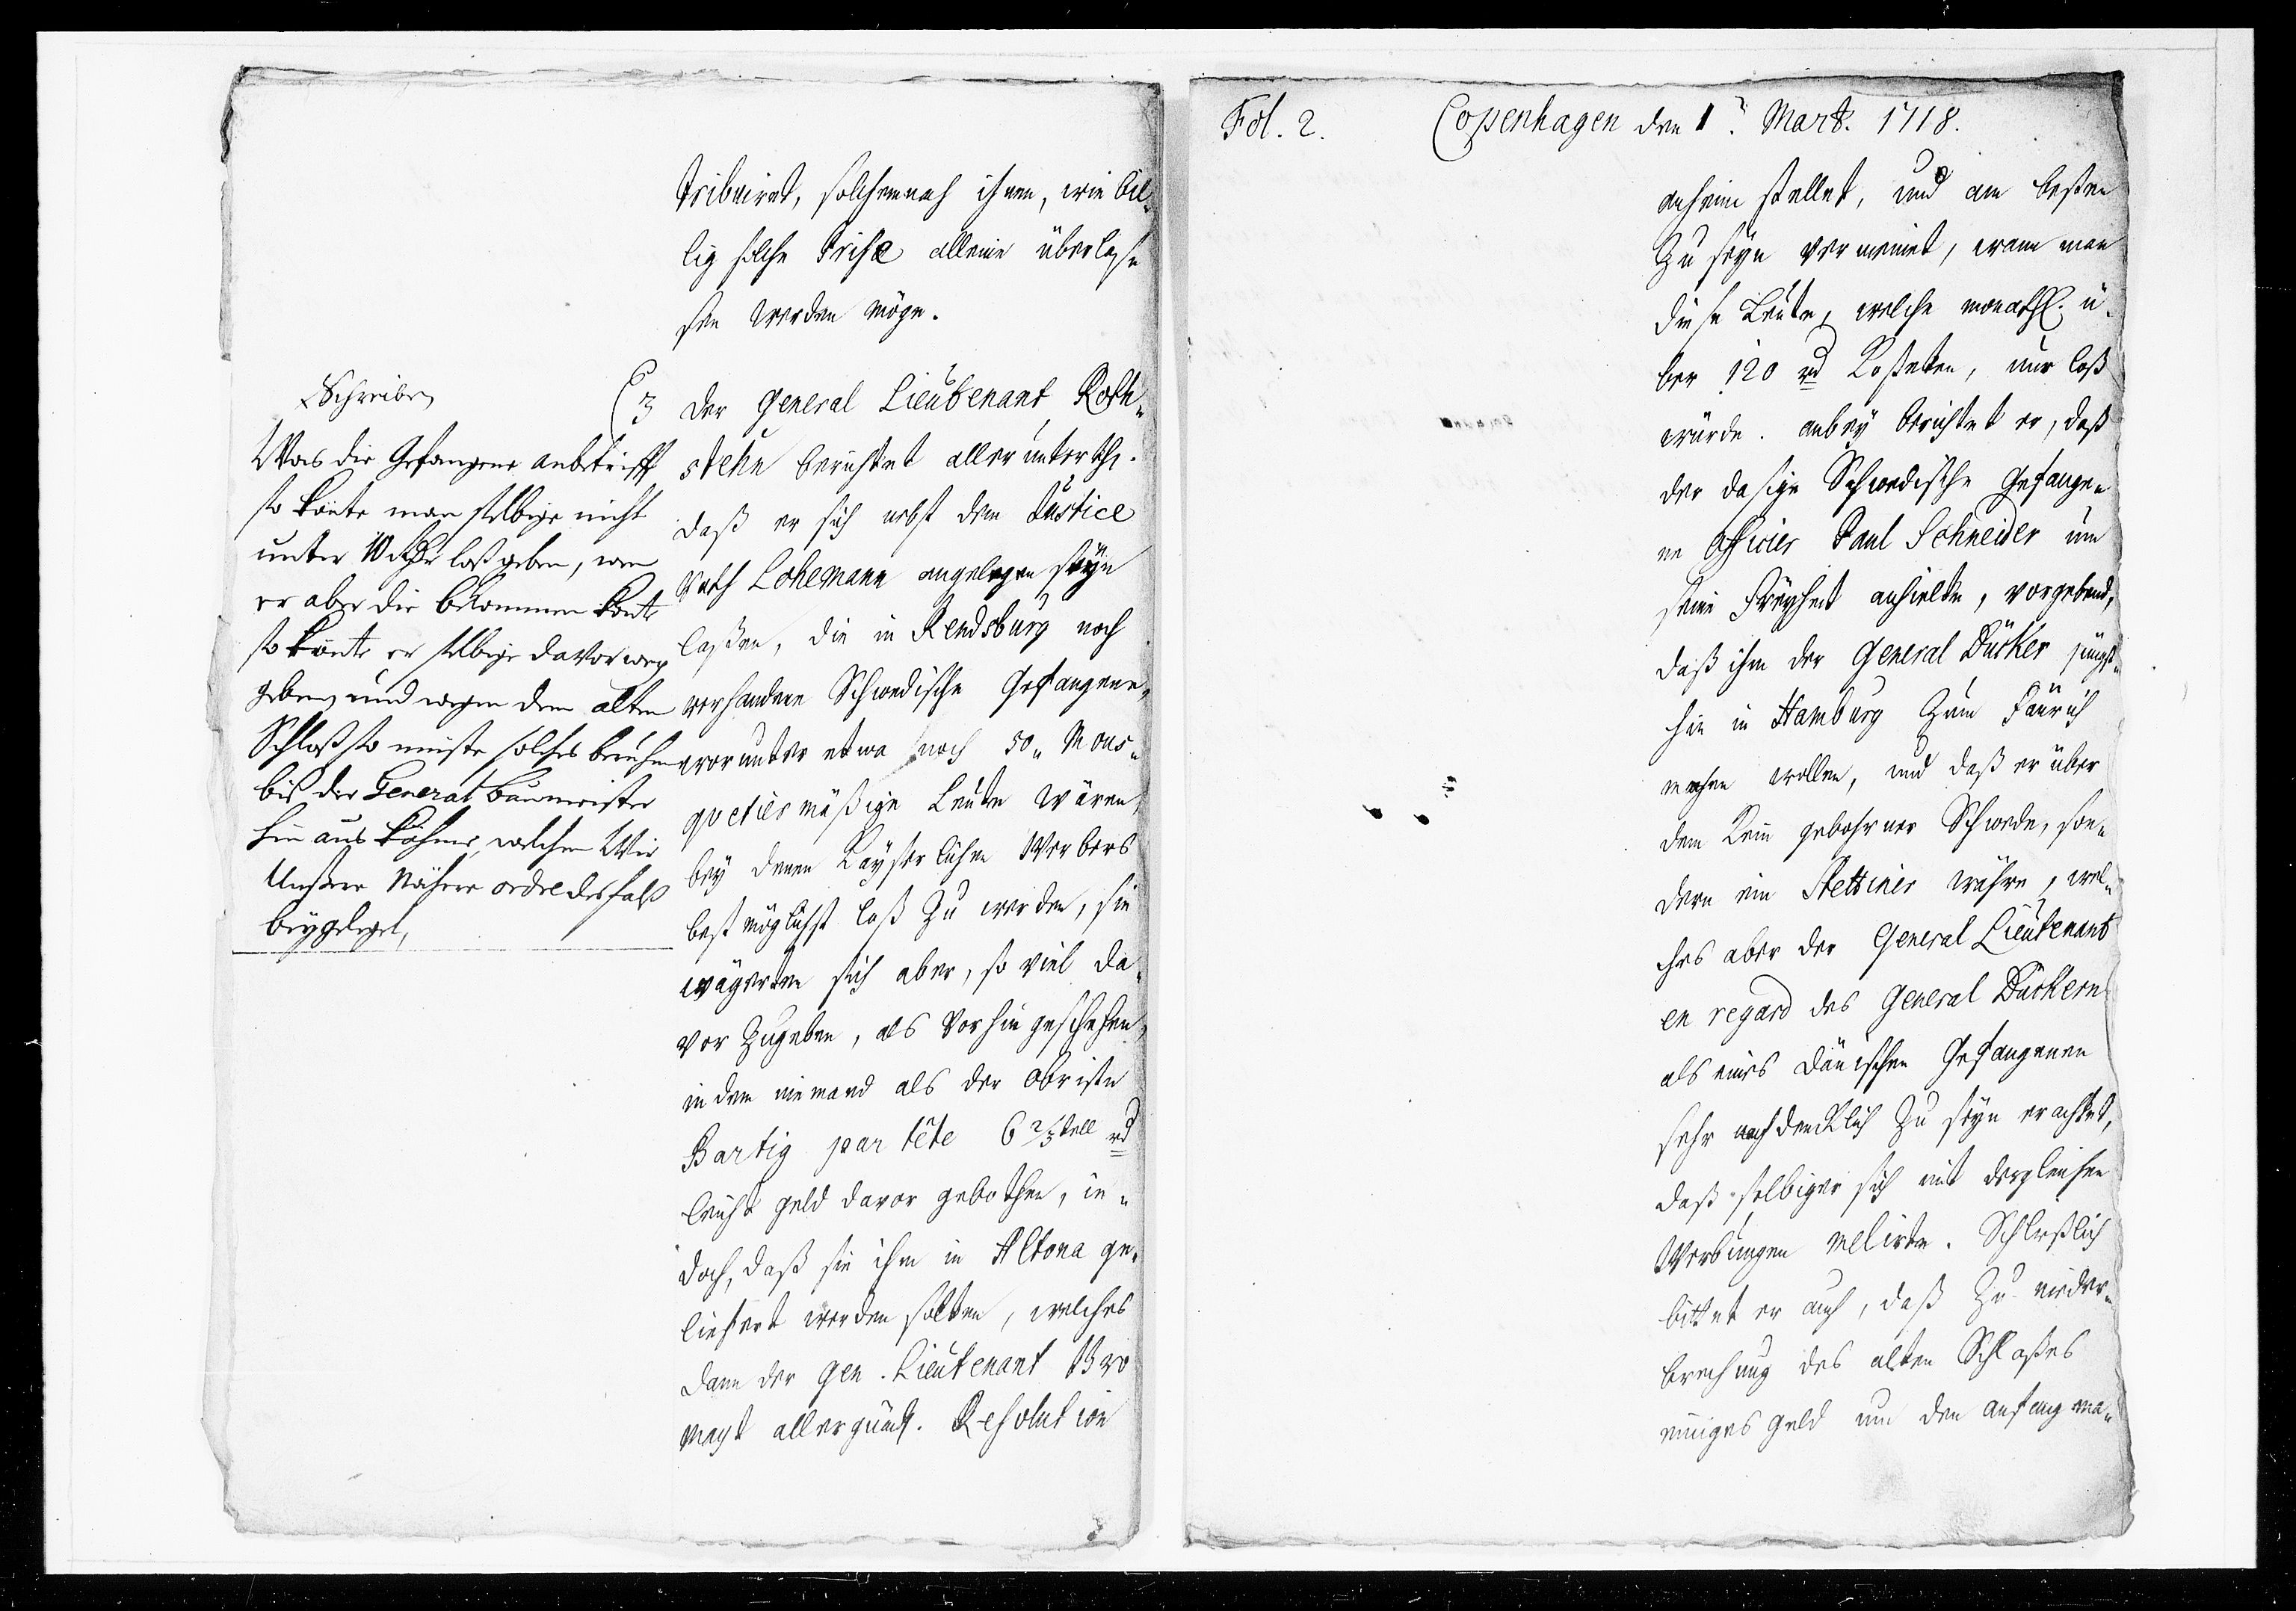 tribuiret, solchemnach ihnen, wie bil„
lig solche Prise alleine überlaße
sen werden möge.
Schreiben
Was die Gefangene anbetrifft
so könte man selbige nicht
unter 10 Rthlr loß geben, wen
er aber die bekommen konte
so könte er selbige davor weg
geben, und wegen dem alten
Schloß so müste solches beruhen
bis der General Baumeister
hin aus köhme, welchem Wir
Unsere Nähere ordre desfalß
beygeleget,
3 Der General Lieutenant Roth„
stehn berichtet allerunterthg.
daß er sich nebst dem Justice
Rath Lohemann angelegen seyn
laßen, die in Rendsburg noch
vorhandene Schwedische Gefangene,
worunter etwa noch 50„ Mous„
quetiermäßige Leute wären,
bey denen Kayserlichen Werbers
best möglichst loß zu werden, sie
wägerten sich aber, so viel da„
vor Zugeben, als Vorhin geschehen,
indem niemand als der Obriste
Bartig par tête 6 2/3tell rd
leicht geld davor gebothen, je„
doch, daß sie ihm in Altona ge„
liefert werden solten, welches
dann der Gen. Lieutenant Bro
Mayt allergündt. Resolution
Fol. 2. Copenhagen den 1. Mart. 1718.
anheim stellet, und am besten
Zu seyn vermeinet, wann man
diese Leute, welche monathl. ü„
ber 120 rd Kosteten, nur loß
würde. anbey berichtet er, daß
der dasige Schwedische Gefange„
ne Officier Paul Schneider um
seine Freyheit anhielte, vorgebend,
daß ihm der General Dücker jüngst„
hin in Hamburg Zum Fänrich
machen wollen, und daß er über
dem Kein gebohrner Schwede, son„
dern ein Stettiner währe, wel„
ches aber der General Lieutenant
en regard des General Dückern
als eines Dänischen Gefangenen
sehr nachdencklich Zu seyn erachtet,
daß selbiger sich mit dergleichen
Werbungen melirte. Schließlich
bittet er auch, daß Zu nieder„
brechung des alten Schloßes
einiges geld um den anfang ma„